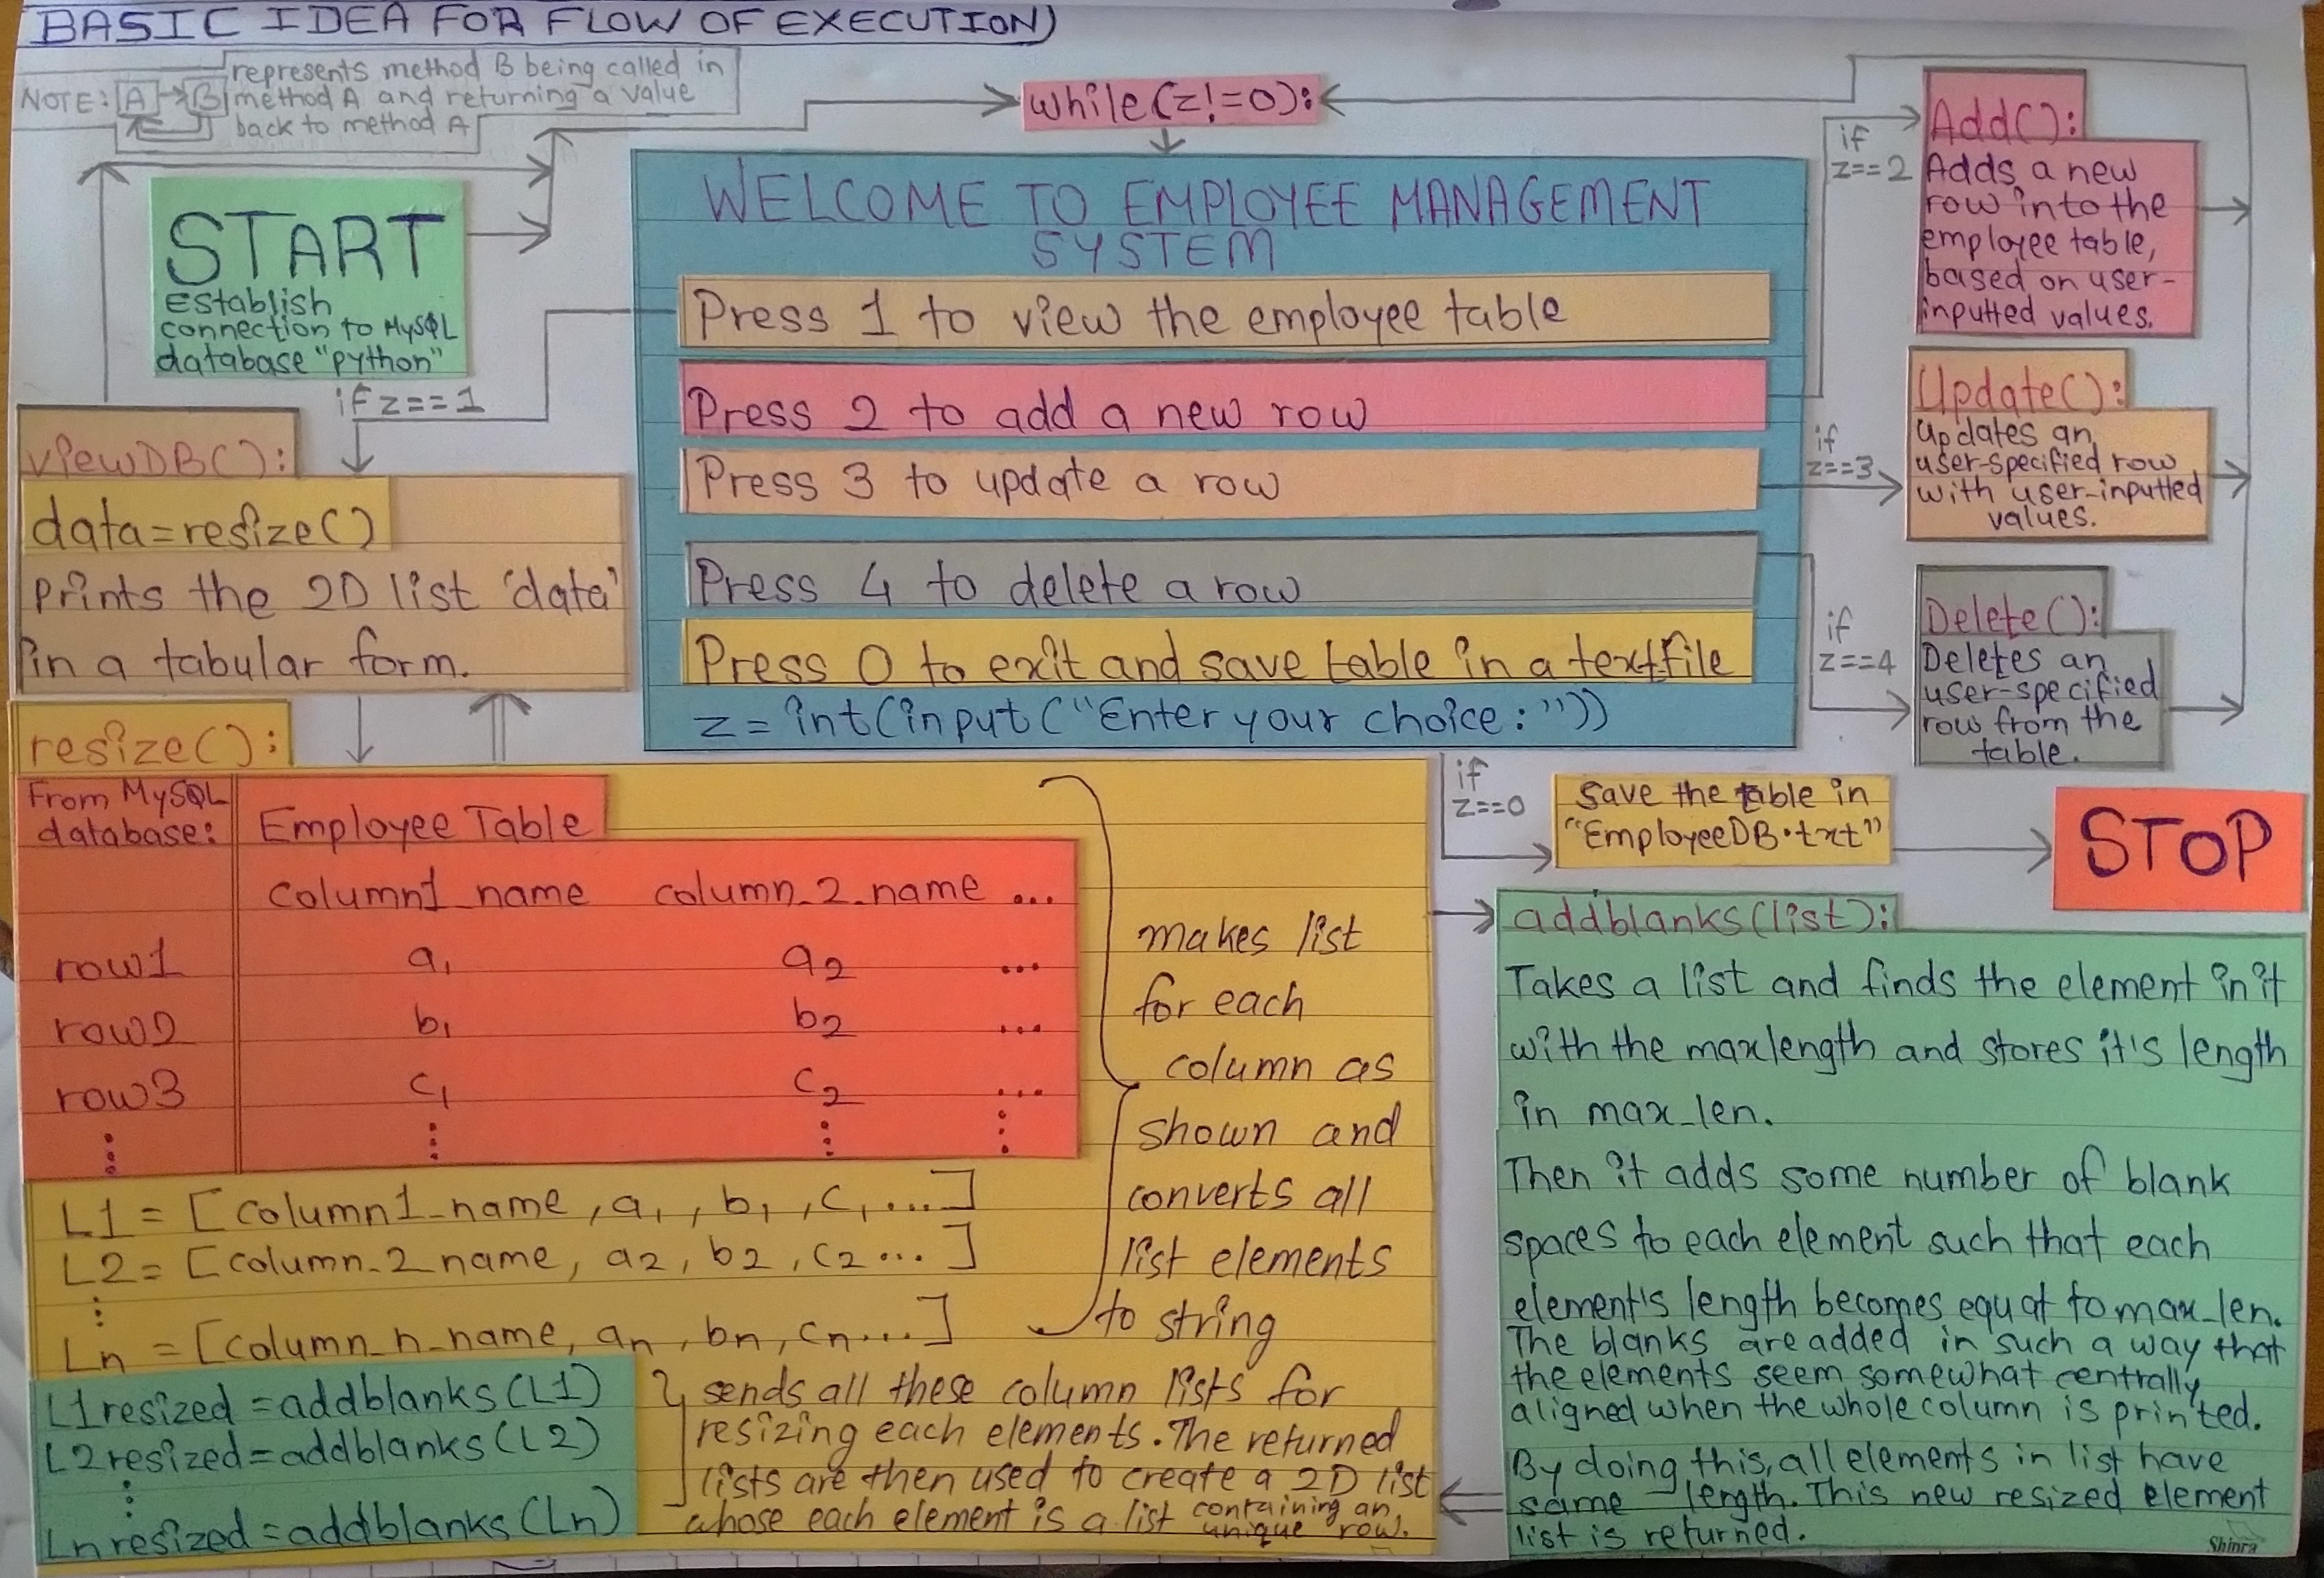 BASIC IDEA FOR FLOW OF EXECUTION)
NOTE: A B
represents method B being called in
method A and returning a value
back to method A
while(z!=0):
START
Establish
connection to MySQL
database "python"
WELCOME TO EMPLOYEE MANAGEMENT
SYSTEM
Press 1 to view the employee table
Press 2 to add a new row
Press 3 to update a row
Press 4 to delete a row
Press 0 to exit and save table in a textfile
z = int(input("Enter your choice:"))
if z==1
if
z==2
if
z==3
if
z==4
if
z==0
Add():
Adds a new
row into the
employee table,
based on user-
inputted values.
Update():
Updates an
user-specified row
with user-inputted
values.
Delete():
Deletes an
user-specified
row from the
table.
Save the table in
"EmployeeDB.txt"
STOP
viewDB():
data=resize()
Prints the 2D list 'data'
in a tabular form.
resize():
From MySQL
database:
Employee Table
column1_name column_2_name ...
row1 a1 a2 ...
row2 b1 b2 ...
row3 c1 c2 ...
L1 = [column1_name, a1, b1, c1, ....]
L2 = [column_2_name, a2, b2, c2 ...]
Ln = [column_n_name, an, bn, cn....]
makes list
for each
column as
shown and
converts all
list elements
to string
L1resized = addblanks(L1)
L2resized = addblanks(L2)
Lnresized = addblanks(Ln)
sends all these column lists for
resizing each elements. The returned
lists are then used to create a 2D list
whose each element is a list containing an
unique row.
addblanks(list):
Takes a list and finds the element in it
with the maxlength and stores it's length
in max_len.
Then it adds some number of blank
spaces to each element such that each
element's length becomes equal to max_len.
The blanks are added in such a way that
the elements seem somewhat centrally
aligned when the whole column is printed.
By doing this, all elements in list have
same length. This new resized element
list is returned.
Shinra